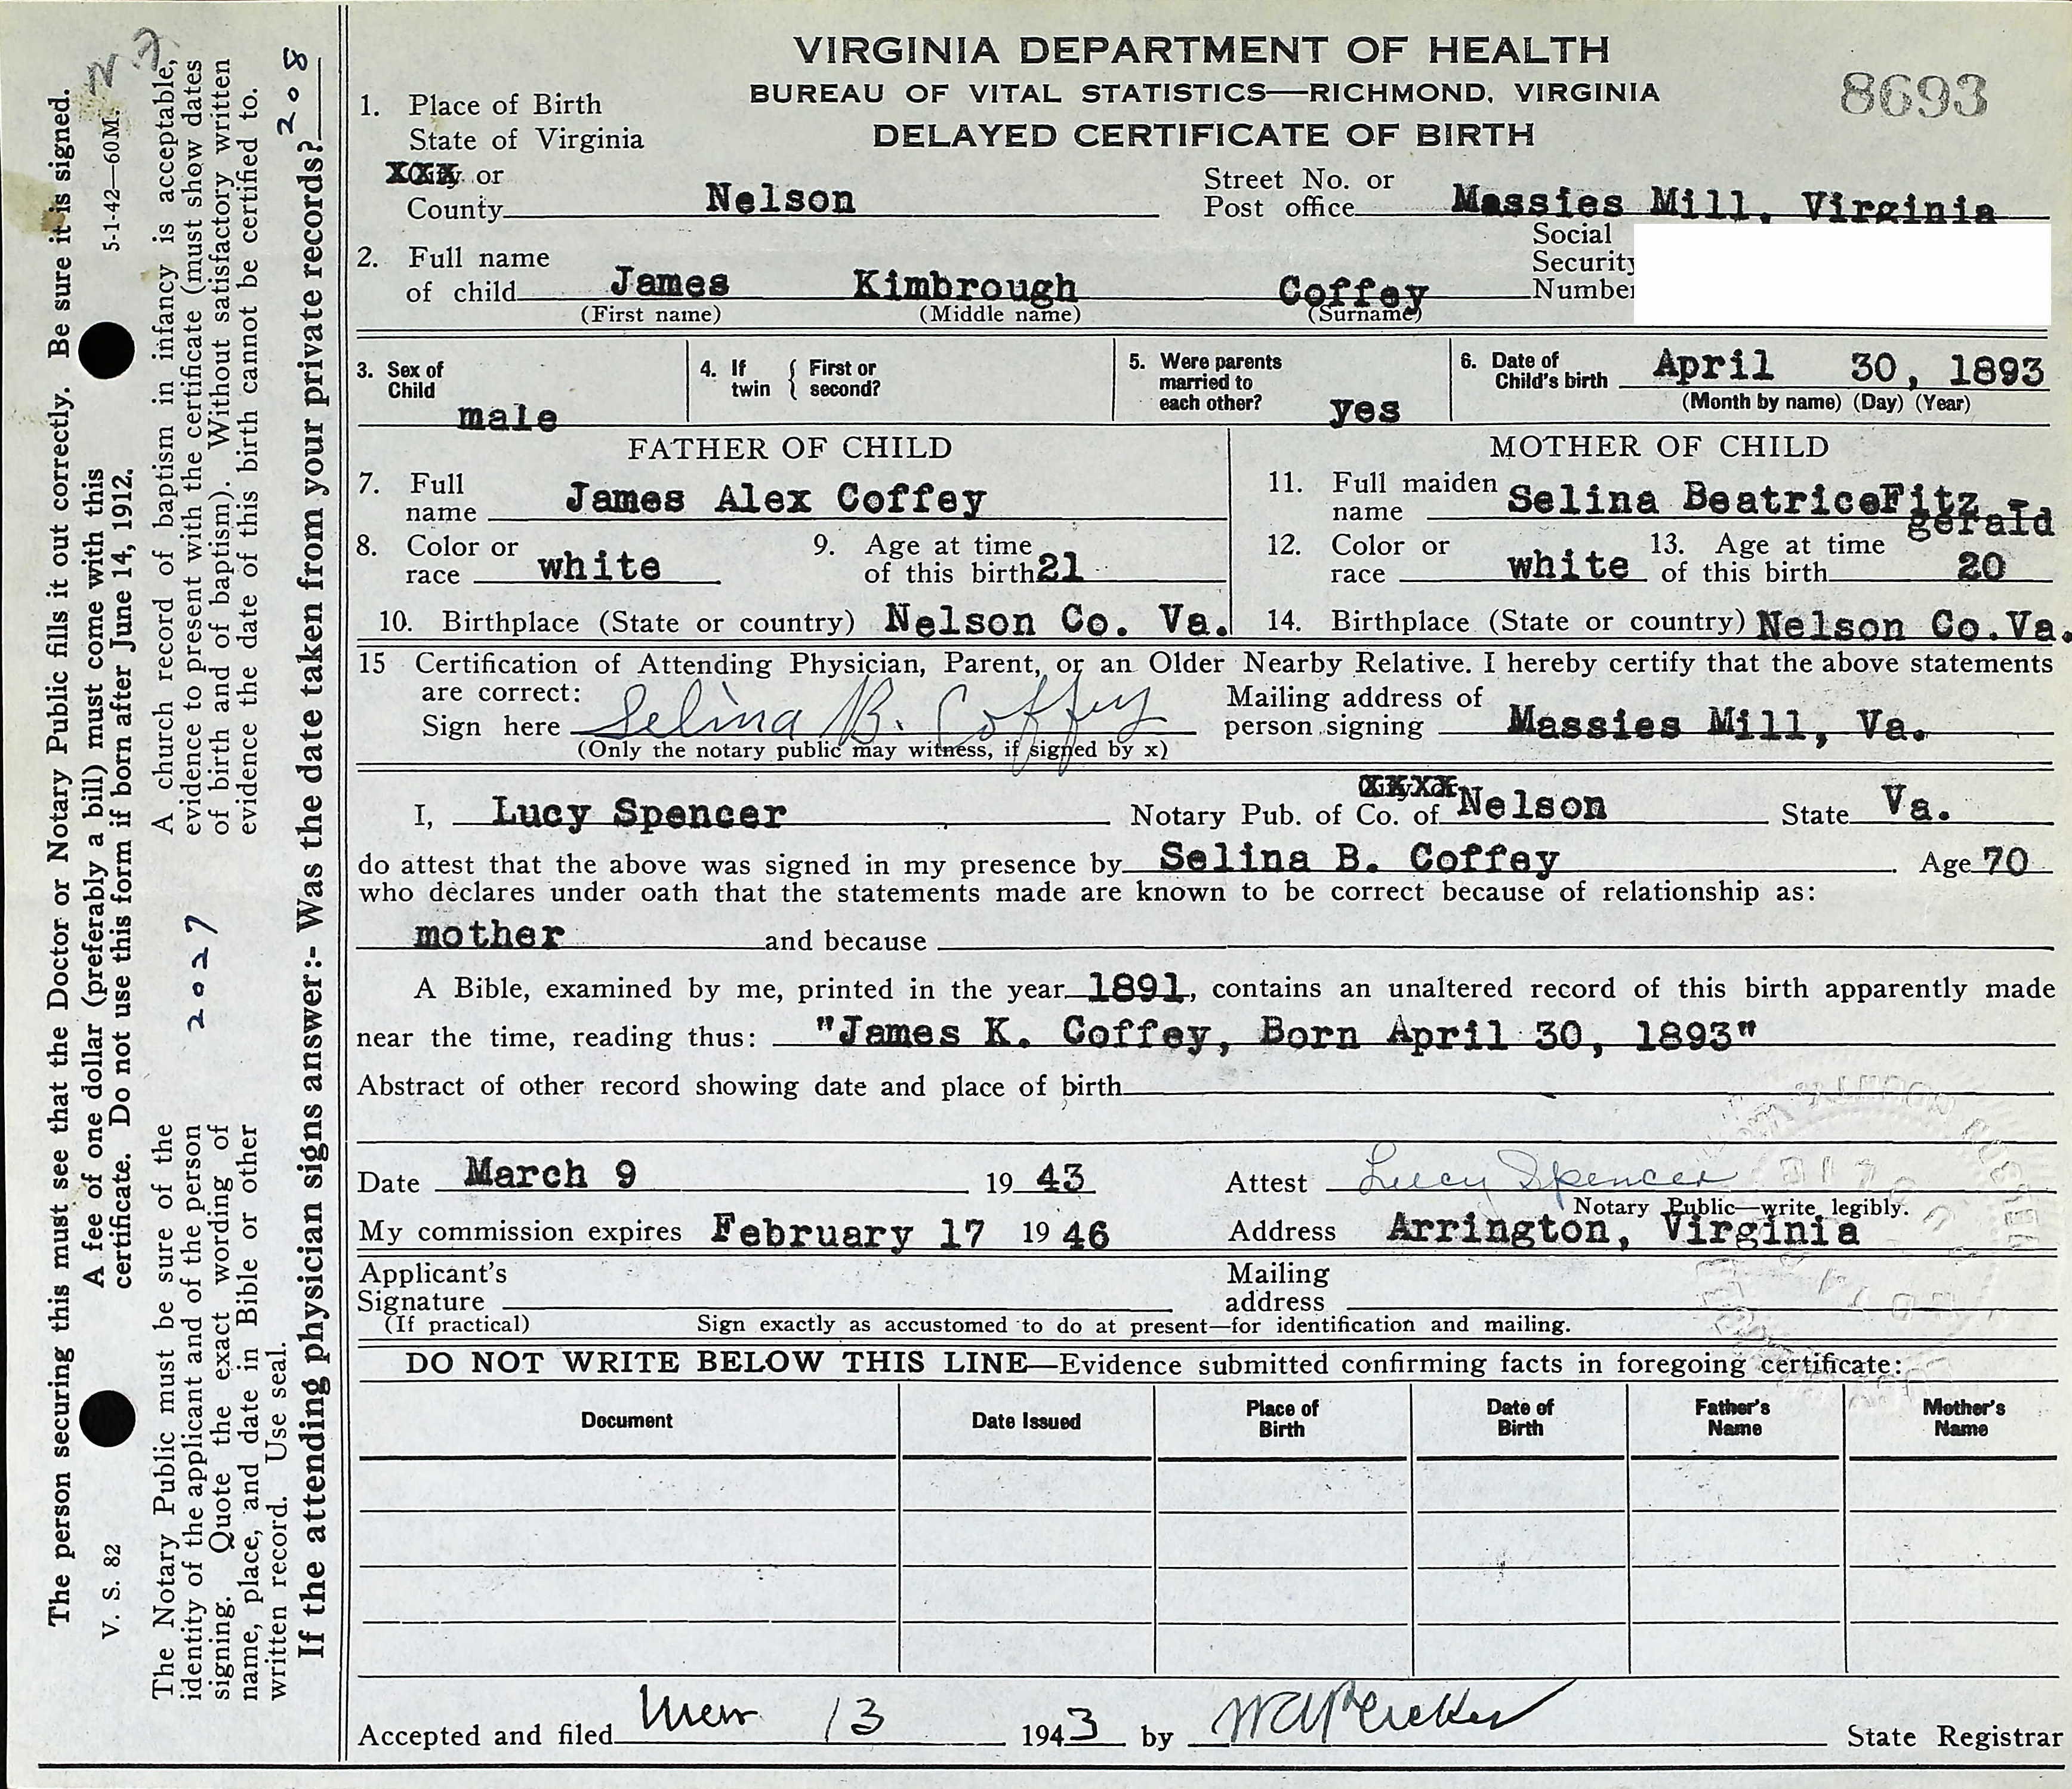 VIRGINIA DEPARTMENT OF HEALTH
BUREAU OF VITAL STATISTICS—RICHMOND, VIRGINIA
DELAYED CERTIFICATE OF BIRTH
8693
1. Place of Birth
State of Virginia
XXX or
County Nelson
Street No. or
Post office Massies Mill, Virginia
2. Full name
of child James Kimbrough Coffey
(First name) (Middle name) (Surname)
Social
Security
Number
3. Sex of
Child male
4. If twin { First or second?
5. Were parents
married to
each other? yes
6. Date of
Child's birth April 30, 1893
(Month by name) (Day) (Year)
FATHER OF CHILD
7. Full
name James Alex Coffey
8. Color or
race white
9. Age at time
of this birth 21
10. Birthplace (State or country) Nelson Co. Va.
MOTHER OF CHILD
11. Full maiden
name Selina BeatriceFitz-
gerald
12. Color or
race white
13. Age at time
of this birth 20
14. Birthplace (State or country) Nelson Co.Va.
15 Certification of Attending Physician, Parent, or an Older Nearby Relative. I hereby certify that the above statements
are correct:
Sign here Selina B. Coffey
(Only the notary public may witness, if signed by x)
Mailing address of
person signing Massies Mill, Va.
I, Lucy Spencer Notary Pub. of Co. of Nelson State Va.
do attest that the above was signed in my presence by Selina B. Coffey. Age 70
who declares under oath that the statements made are known to be correct because of relationship as:
mother and because
A Bible, examined by me, printed in the year 1891, contains an unaltered record of this birth apparently made
near the time, reading thus: "James K. Coffey, Born April 30, 1893"
Abstract of other record showing date and place of birth
Date March 9 1943
Attest Lucy Spencer
Notary Public—write legibly.
My commission expires February 17 1946
Address Arrington, Virginia
Applicant's
Signature
(If practical)
Mailing
address
Sign exactly as accustomed to do at present—for identification and mailing.
DO NOT WRITE BELOW THIS LINE—Evidence submitted confirming facts in foregoing certificate:
Document
Date Issued
Place of
Birth
Date of
Birth
Father's
Name
Mother's
Name
Accepted and filed 13 1943 by State Registrar
The person securing this must see that the Doctor or Notary Public fills it out correctly. Be sure it is signed.
V. S. 82
A fee of one dollar (preferably a bill) must come with this
certificate. Do not use this form if born after June 14, 1912.
5-1-42—60M.
The Notary Public must be sure of the
identity of the applicant and of the person
signing. Quote the exact wording of
name, place, and date in Bible or other
written record. Use seal.
2027
A church record of baptism in infancy is acceptable,
evidence to present with the certificate (must show dates
of birth and of baptism). Without satisfactory written
evidence the date of this birth cannot be certified to.
If the attending physician signs answer:- Was the date taken from your private records?
208